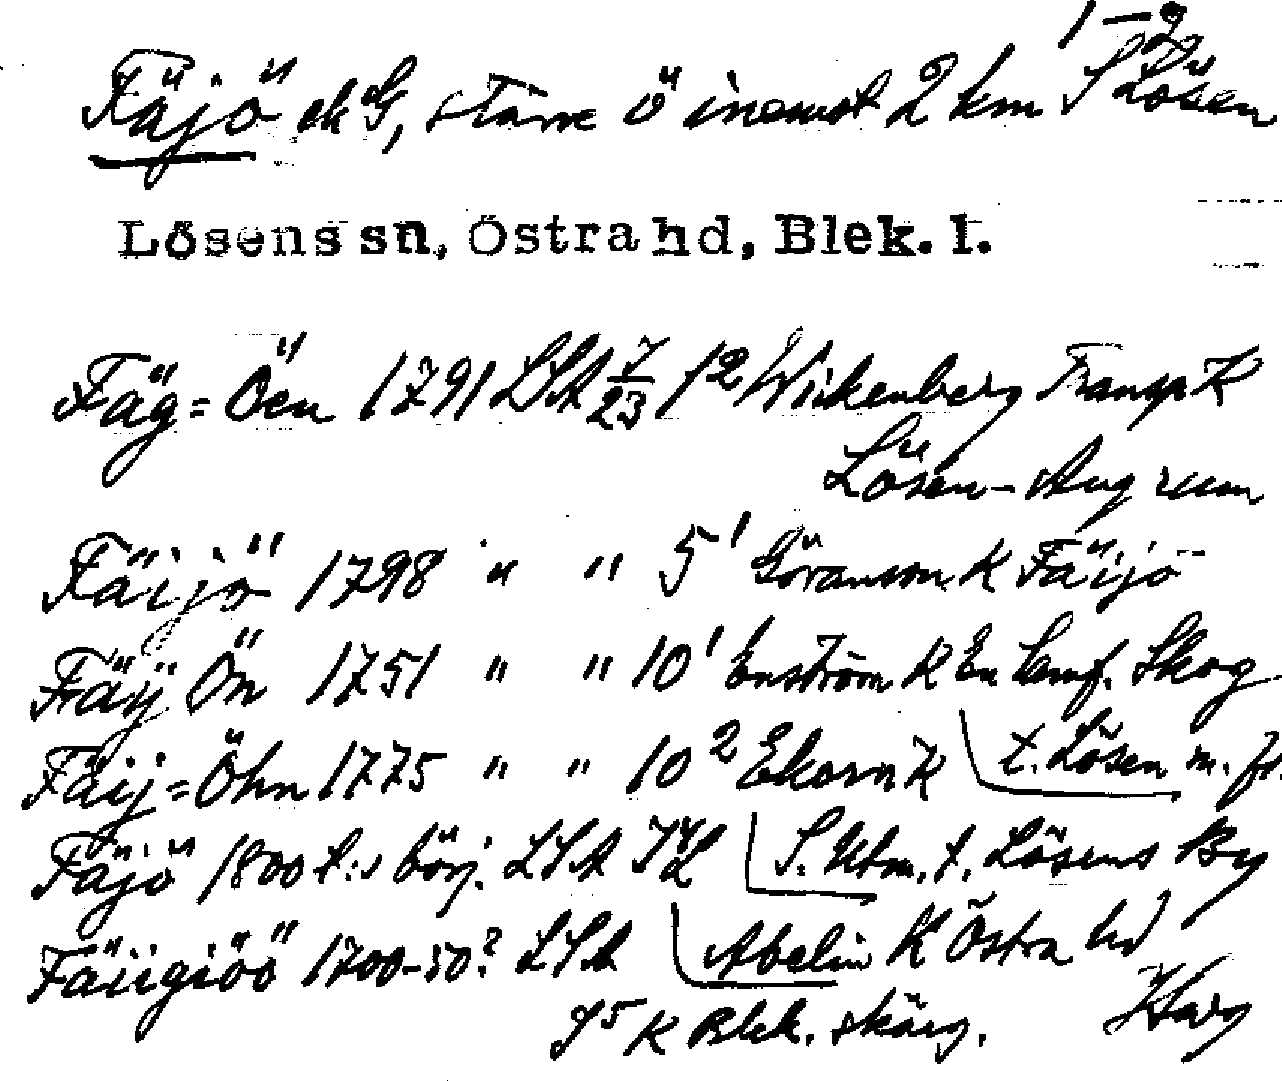 1–2
Fäjö ek G, större ö inemot 2 km S Lösen
Lösens sn, Östra hd, Blek. l.
Fäg=Öen 1791 LSA 7/23 1² Wikenberg Transp K
Lösen-Augerum
Fäijö 1798 " " 5¹ Göranson K Fäijö
Fäij Ön 1751 " " 10¹ Enström K En Skog
Fäij=Öhn 1775 " " 10² Ekorn K t. Lösen m. fl.
Fäjö 1800 t:s börj. LSA S. Utm. t. Lösens By
Fäiigiöö 1700-50? LSA Abelin K Östra hd
K Blek. skärg.